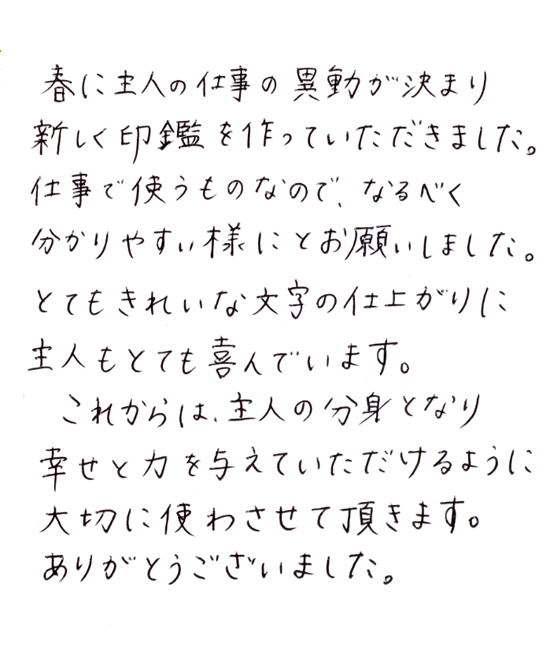 春に主人の仕事の異動が決まり
新しく印鑑を作っていただきました。
仕事で使うものなので、なるべく
分かりやすい様にとお願いしました。
とてもきれいな文字の仕上がりに
主人もとても喜んでいます。
これからは、主人の分身となり
幸せと力を与えていただけるように
大切に使わさせて頂きます。
ありがとうございました。